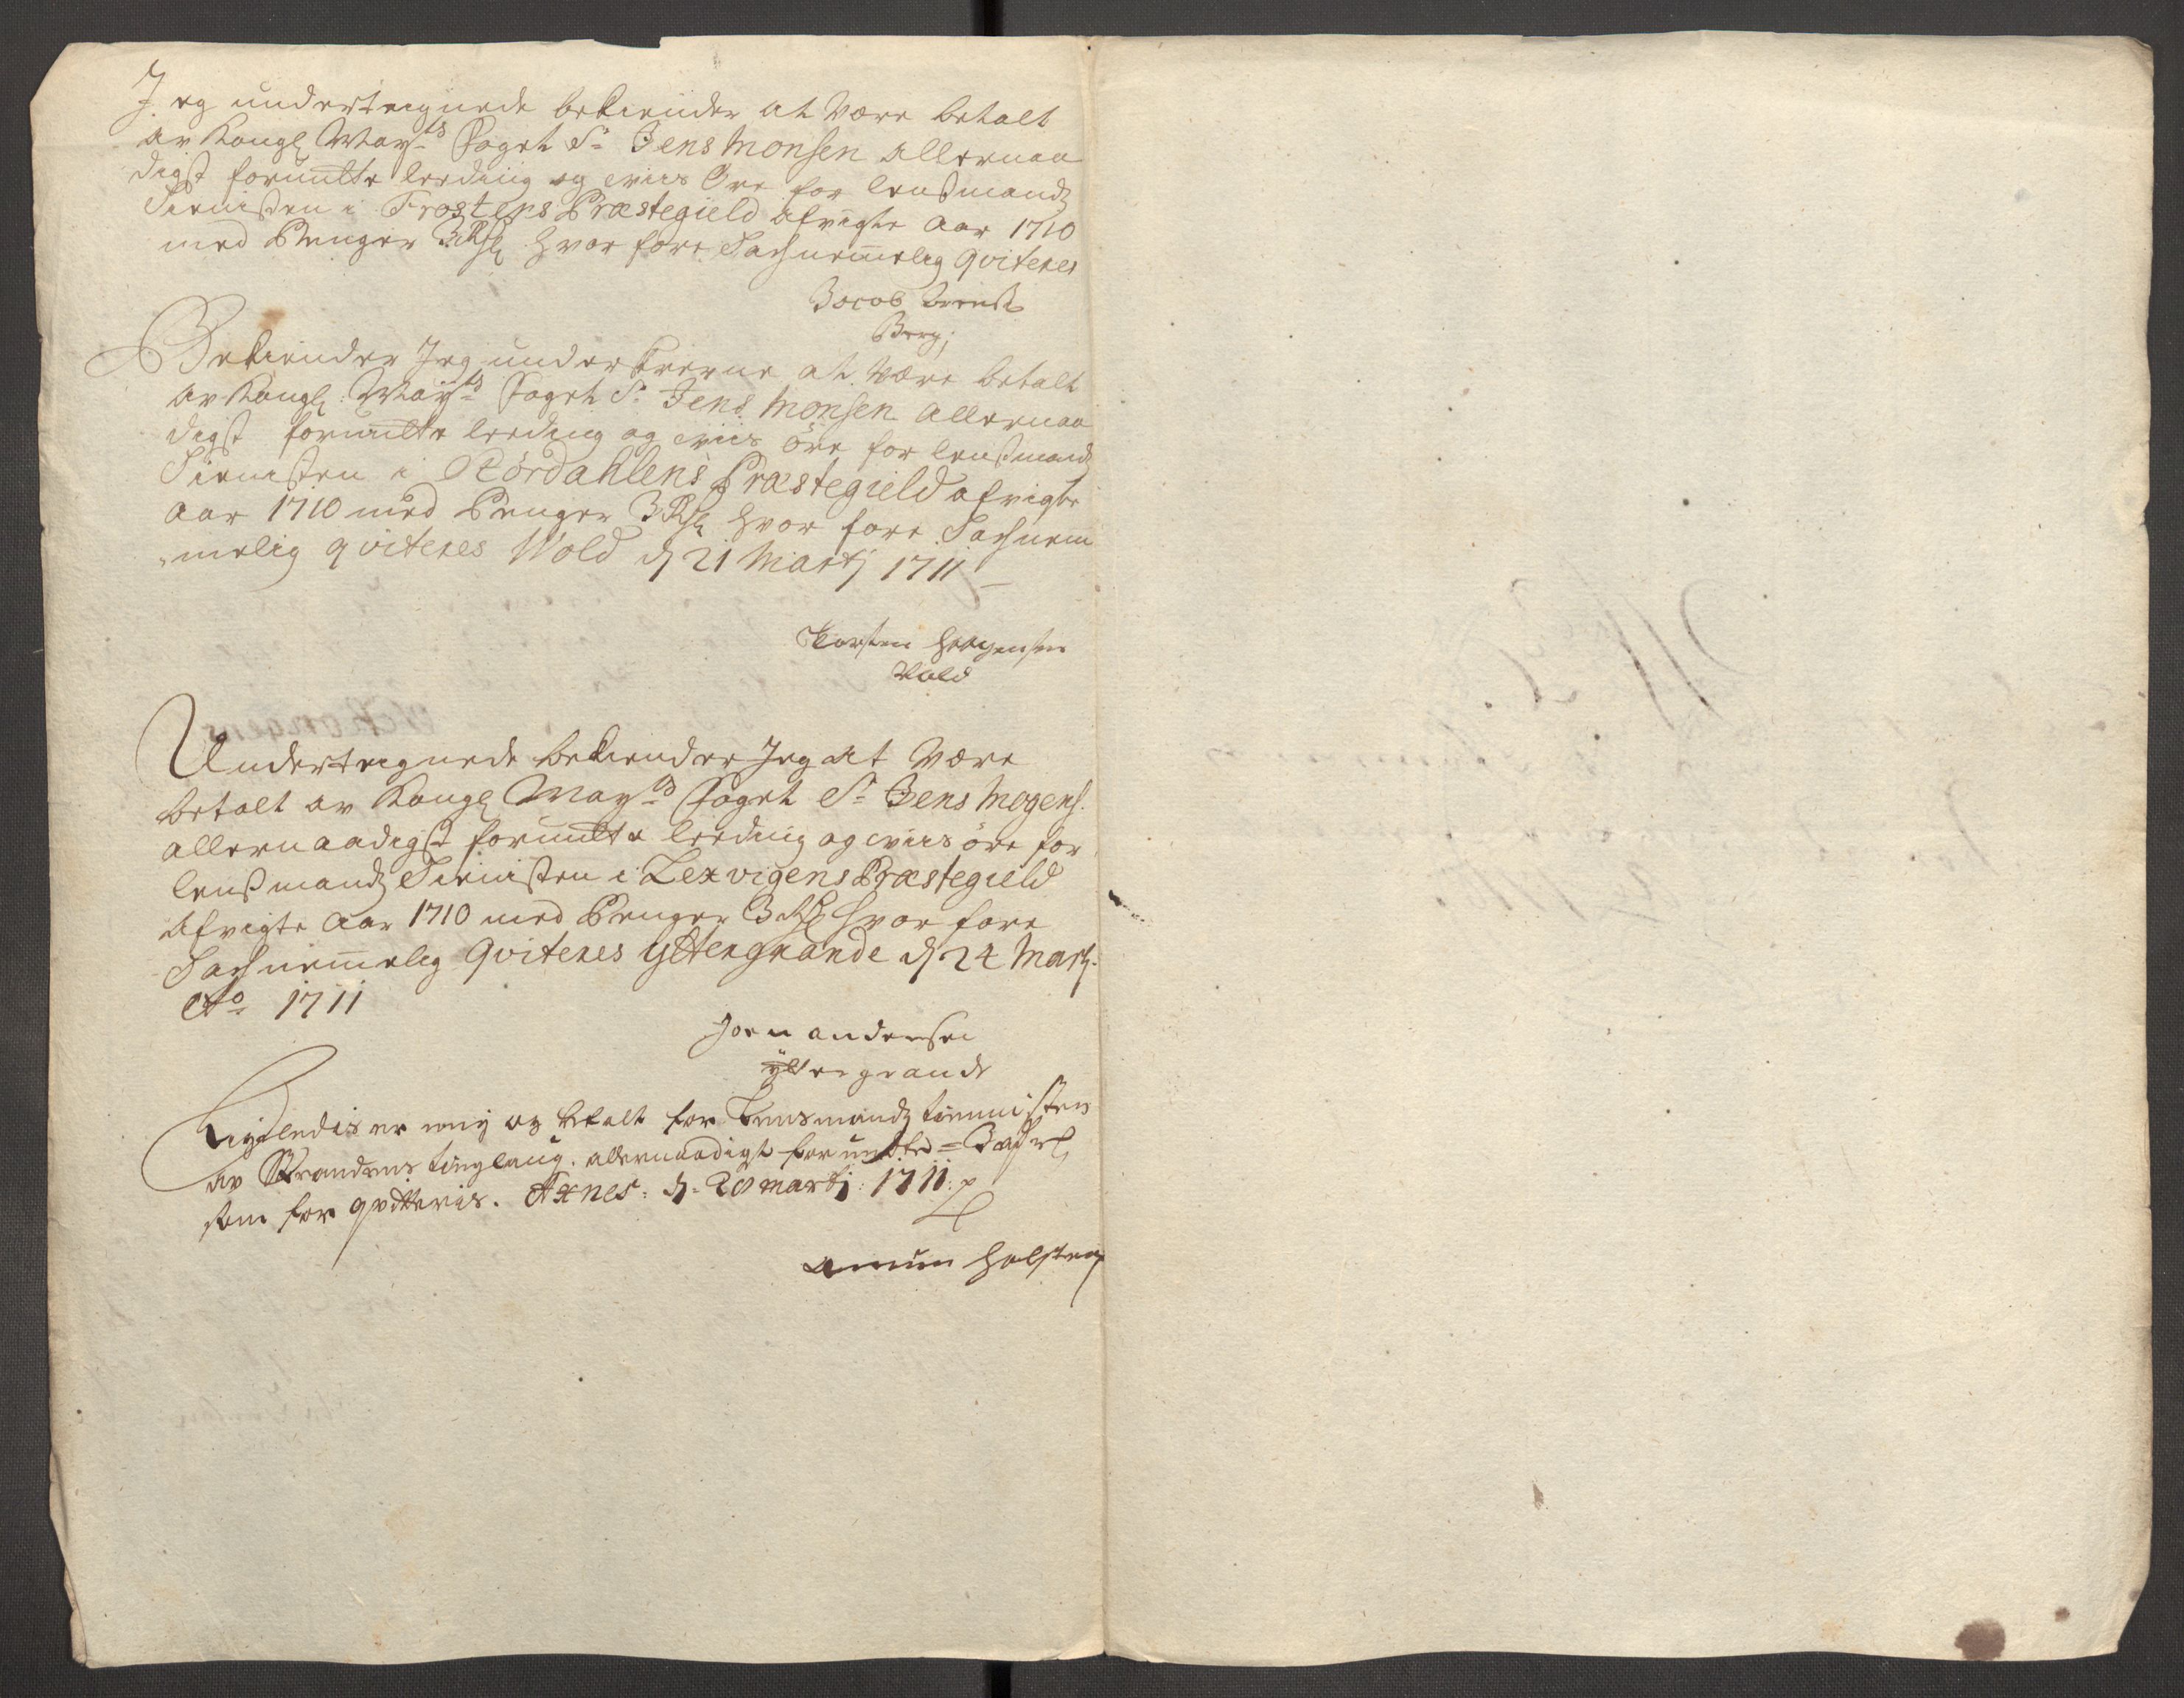 Jeg underteignede bekiender at være betalt
av Kongl May:ts Foget Sr. Jens Monsen allernaa
digst forundte leeding og viis Øre for lensmandz
Tienisten i Frostens Præstegield afvigte Aar 1710
med Penger 3 Rdl hvor fore Tachnemmelig qviteres
Jacob
Berg
Bekiender Jeg under at være betalt
av Kongl: May:ts Foget Sr. Jens Monsen allernaa
digst forundte leeding og viis öre for lensmandz
Tienisten i Størdahlens Præstegield afvigte
aar 1710 med Penger 3 Rdl hvor fore Tachnem
melig qviteres Wold d 21 Martj 1711
Torsten
Vold
Underteignede bekiender Jeg at være
betalt av Kongl May:ts Foget Sr. Jens Mogens.
allernaadigst forundte leeding og viis öre for
lensmandz Tienisten i Lexvigens Præstegield
afvigte Aar 1710 med Penger 3 Rdl hvor fore
Tachnemmelig qviteres Yttergrande d 24 Martj.
Ao 1711
Joen andersen
ytergrande
er mig og betalt for Lensmandz tiennisten
av Strandens tinglaug. allernaadigst forundte =
som for qvitteris. Axnes: d. 20 martj: 1711:
Holsten